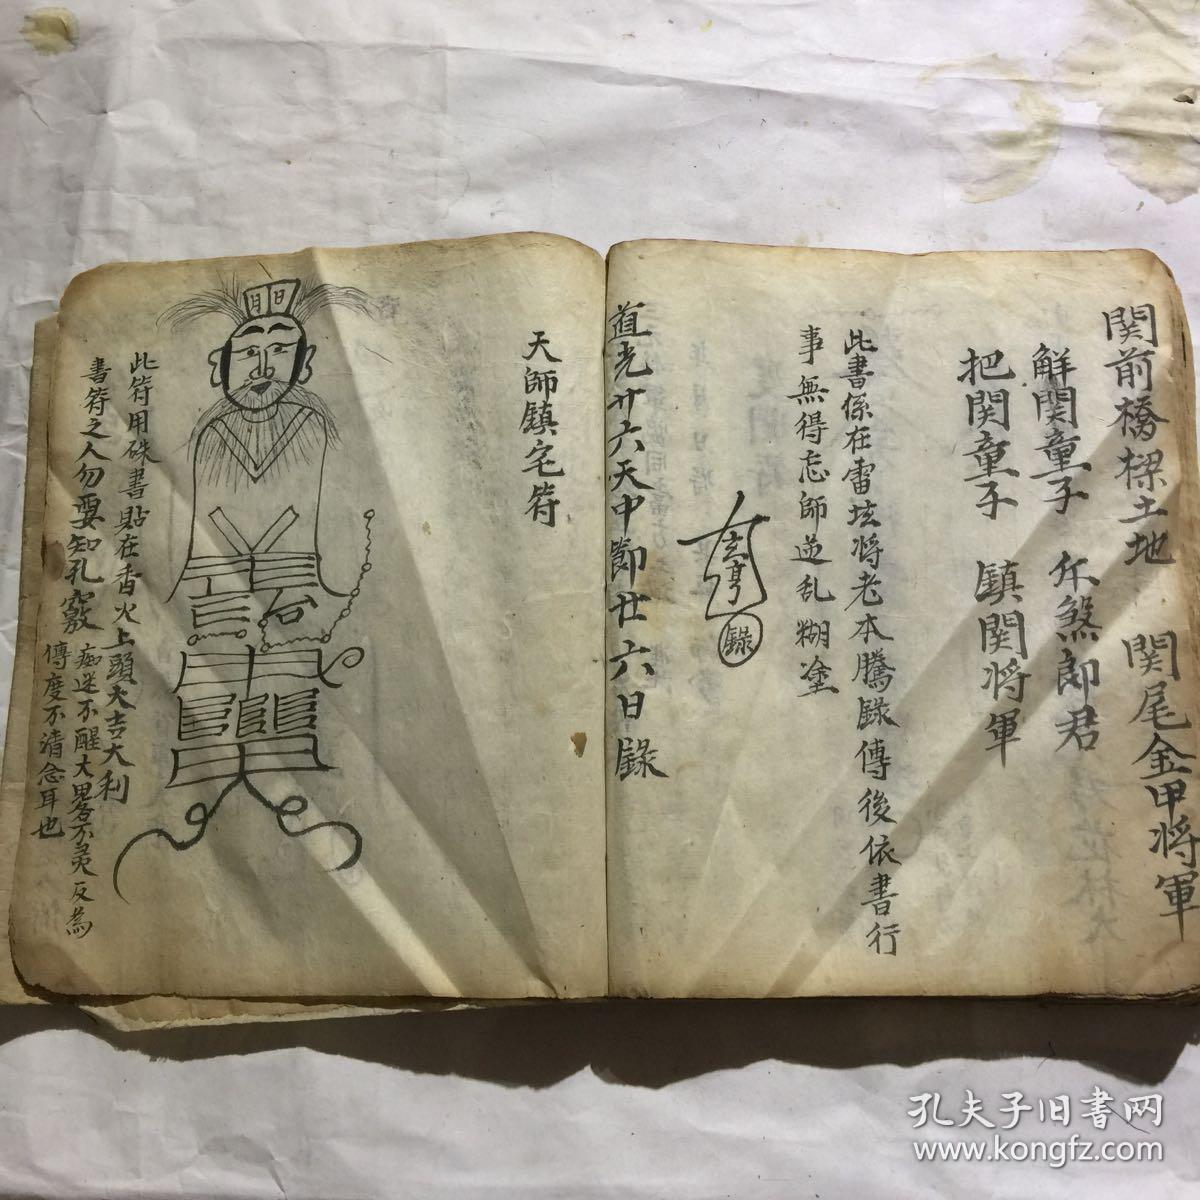 関前橋樑土地 関尾金甲將軍
觧関童子 㐱煞郎君
把関童子 鎮関將軍
此書係在雷坛将老本騰録傳後依書行
事無得忘師逆乱糊塗
玄亨
録
道光廾六天中節廿六日録
天師鎮宅符
此符用硃書貼在香火上頭大吉大利
書符之人勿要知孔竅痴迷不醒大畧不灵反為
傳度不清念耳也
孔夫子旧书网
www.kongfz.com